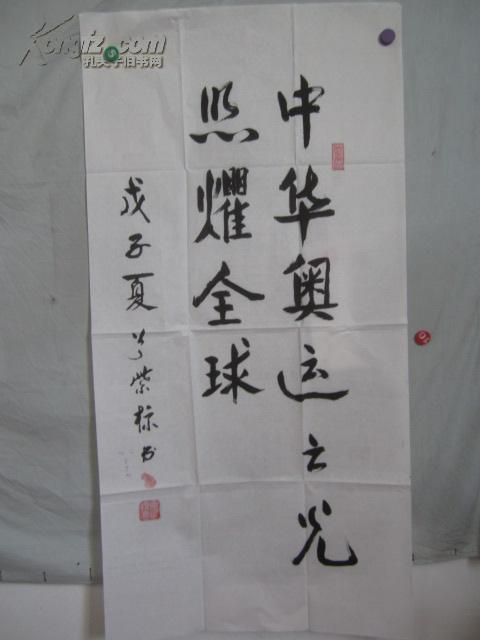 Kongfz.com
孔夫子旧书网
中华奥运之光
照耀全球
戊子夏 紫标书